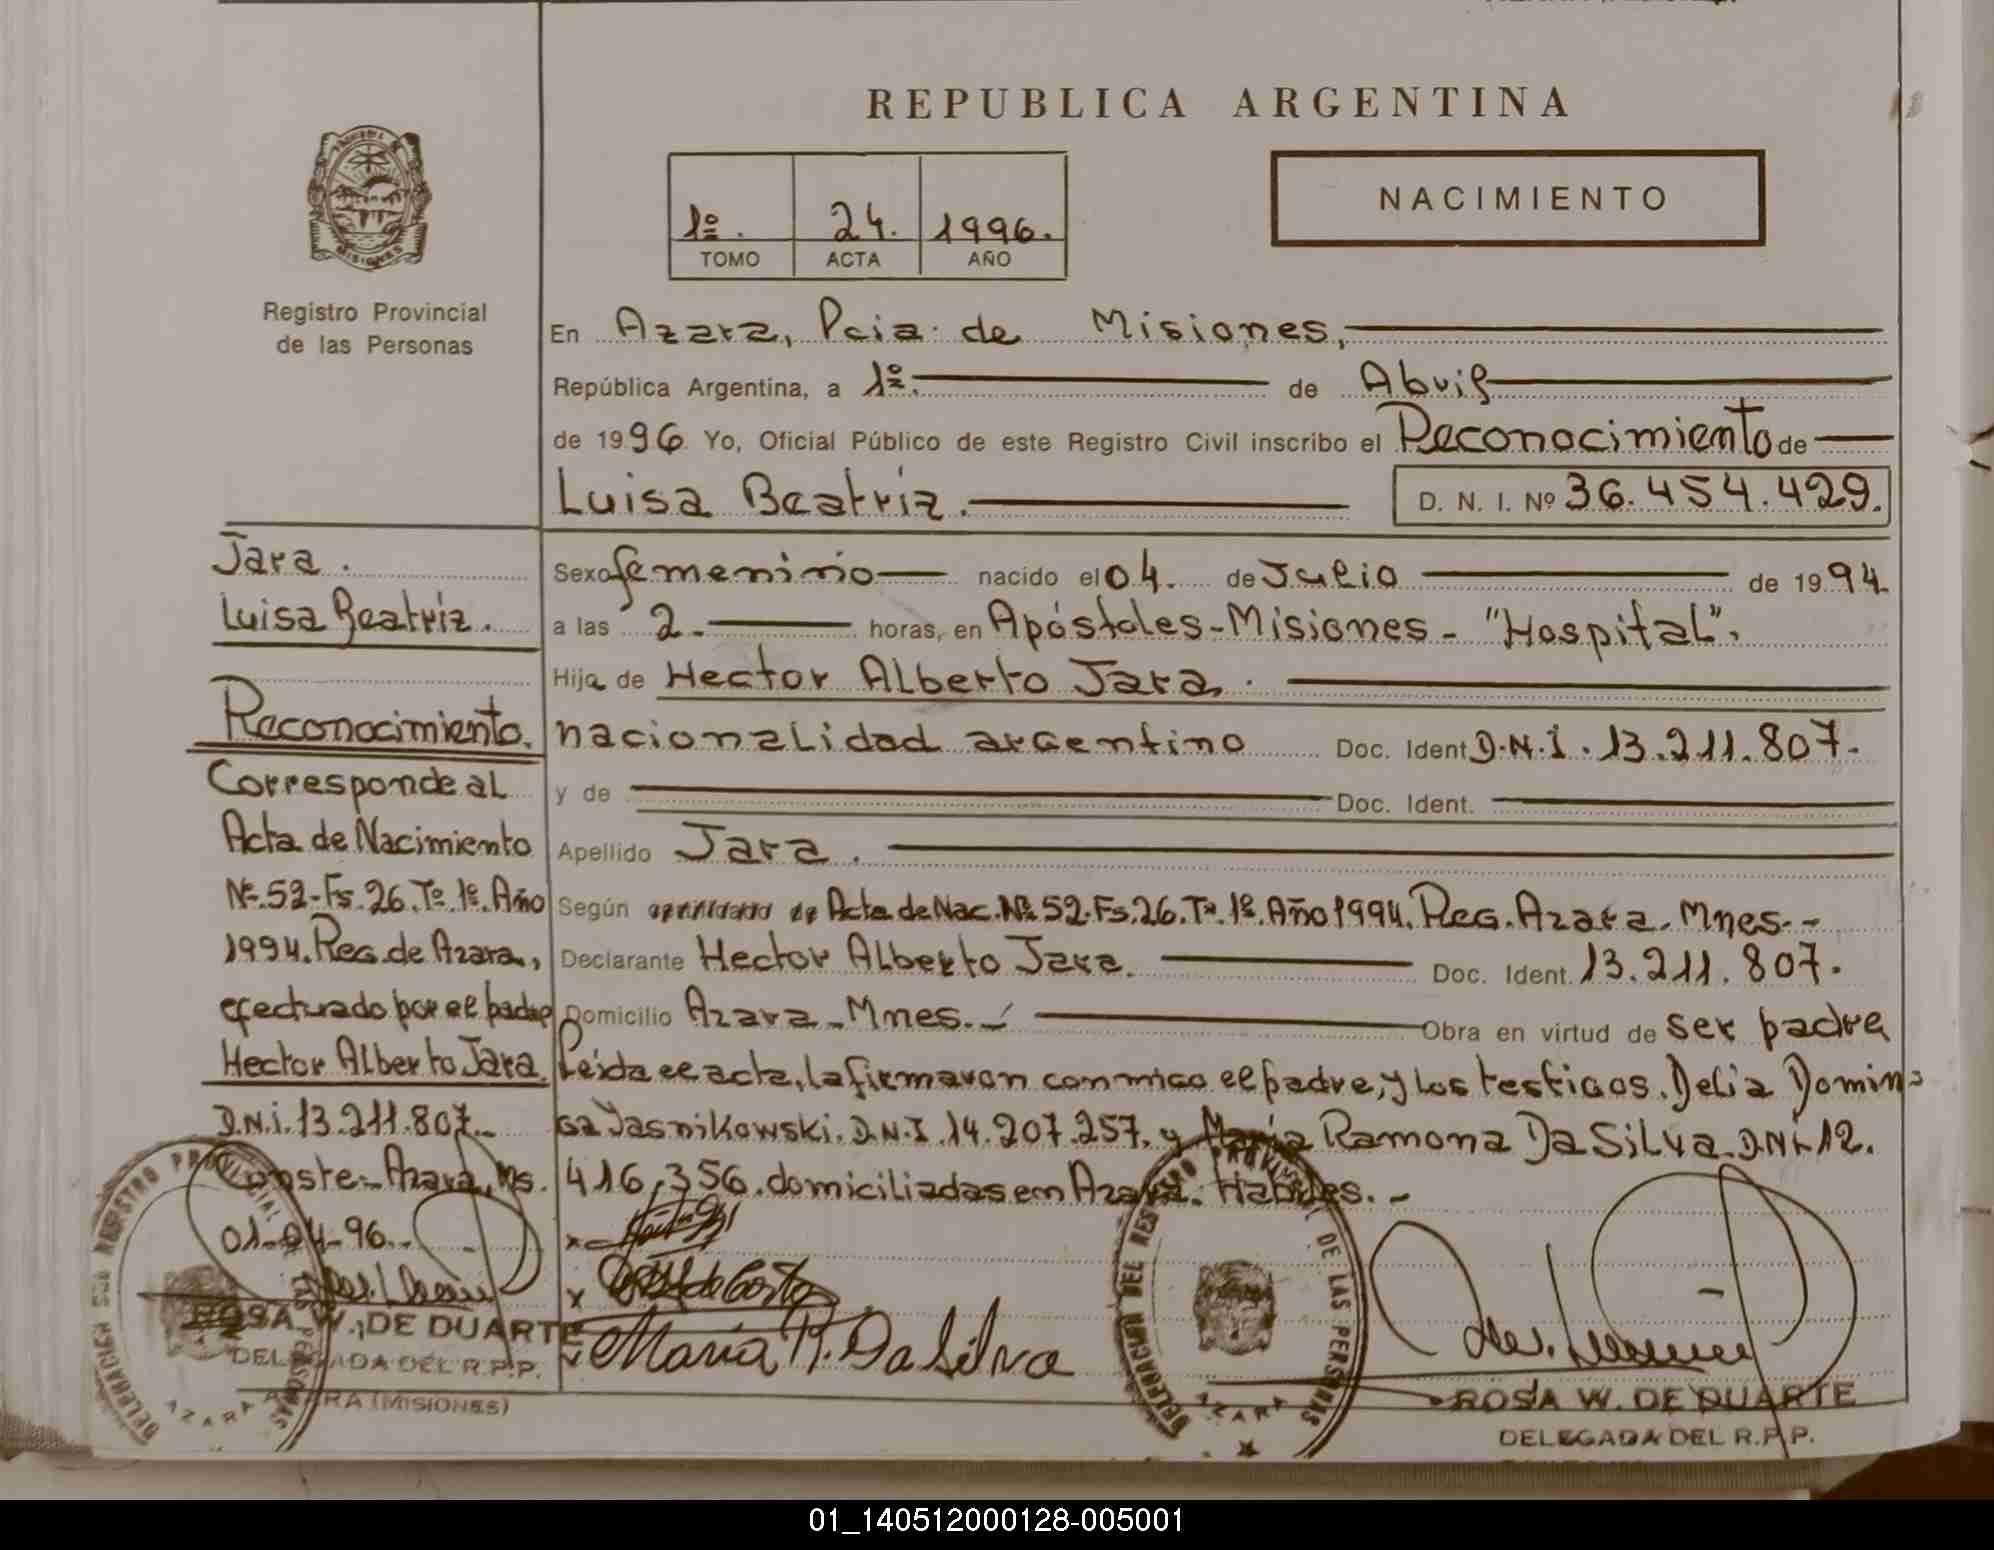 REPUBLICA ARGENTINA
NACIMIENTO
1º. 24. 1996.
TOMO ACTA AÑO
Registro Provincial
de las Personas
En Azara, Pcia. de Misiones,
República Argentina, a 1º. de Abril
de 1996 Yo, Oficial Público de este Registro Civil inscribo el Reconocimiento de
Luisa Beatríz. D. N. I. Nº 36.454.429.
Sexo femenino nacido el 04. de Julio de 1994.
a las 2. horas, en Apóstoles-Misiones- "Hospital".
Hija de Hector Alberto Jara.
nacionalidad argentino Doc. Ident. D.N.I. 13.211.807.
y de Doc. Ident.
Apellido Jara.
Según Acta de Nac. Nº 52. Fs. 26. Tº 1º. Año 1994. Reg. Azara. Mnes.-
Declarante Hector Alberto Jara. Doc. Ident. 13.211.807.
Domicilio Azara - Mnes.- Obra en virtud de ser padre
Leída el acta, la firmaron conmigo el padre, y los testigos. Delia Domin-
ga Yasnikowski. D.N.I. 14.207.257. y María Ramona Da Silva. D.N.I. 12.
416.356. domiciliadas en Azara. Habiles.-
Jara.
Luisa Beatríz.
Reconocimiento.
Corresponde al
Acta de Nacimiento
Nº. 52-Fs. 26. Tº. 1º. Año
1994. Reg. de Azara,
efectuado por el padre
Hector Alberto Jara.
D.N.I. 13.211.807.-
Conste.- Azara, Ms.
01-04-96.-
ROSA W. DE DUARTE
DELEGADA DEL R.P.P.
AZARA (MISIONES)
DELEGACION DEL REGISTRO PROVINCIAL DE LAS PERSONAS
AZARA
María R. Da Silva
DELEGACION DEL REGISTRO PROVINCIAL DE LAS PERSONAS
AZARA
ROSA W. DE DUARTE
DELEGADA DEL R.P.P.
01_140512000128-005001